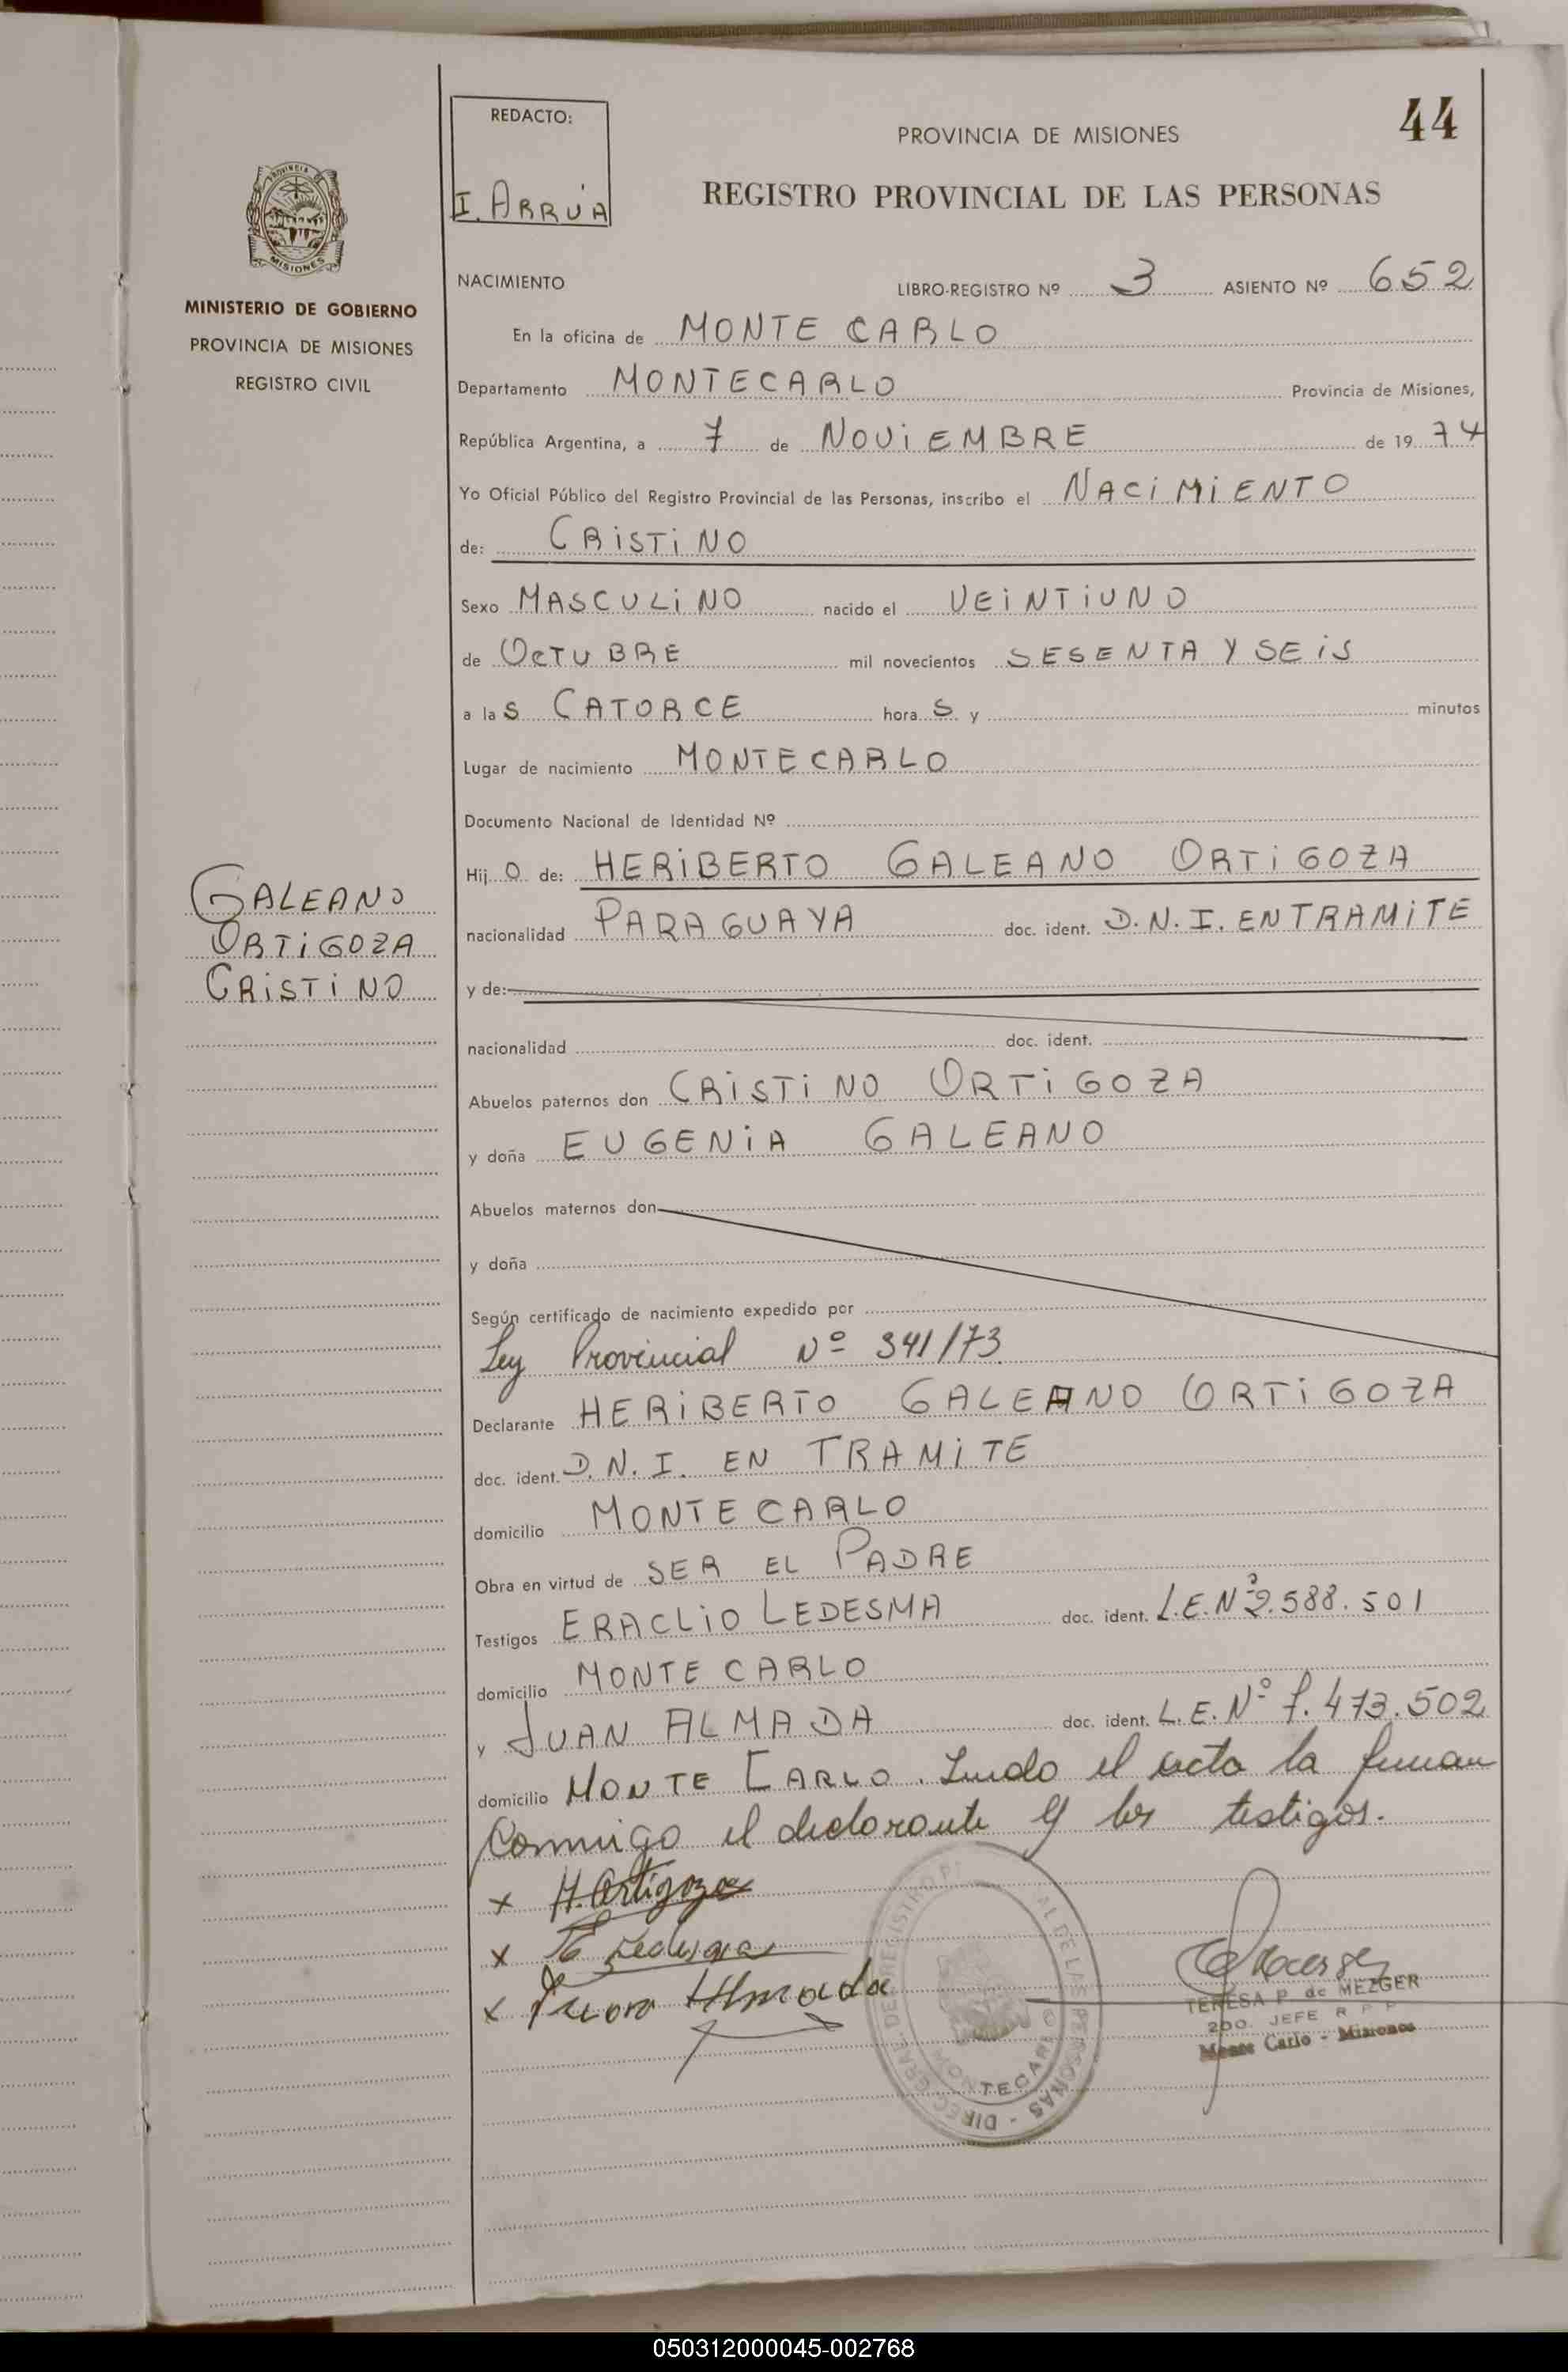 44
REDACTO:
I. ARRUA
PROVINCIA DE MISIONES
REGISTRO PROVINCIAL DE LAS PERSONAS
PROVINCIA DE
MISIONES
MINISTERIO DE GOBIERNO
PROVINCIA DE MISIONES
REGISTRO CIVIL
NACIMIENTO LIBRO-REGISTRO Nº 3 ASIENTO Nº 652
En la oficina de MONTE CARLO
Departamento MONTECARLO Provincia de Misiones,
República Argentina, a 7 de NOViEMBRE de 19 74
Yo Oficial Público del Registro Provincial de las Personas, inscribo el NACiMiENTO
de: CRiSTiNO
Sexo MASCULiNO nacido el VEiNTiUNO
de OCTUBRE mil novecientos SESENTA Y SEiS
a las CATORCE horas y minutos
Lugar de nacimiento MONTECARLO
Documento Nacional de Identidad Nº
Hijo de: HERiBERTO GALEANO ORTiGOZA
nacionalidad PARAGUAYA doc. ident. D.N.I. EN TRAMiTE
GALEANO
ORTiGOZA
CRiSTiNO
y de:
nacionalidad doc. ident.
Abuelos paternos don CRiSTiNO ORTiGOZA
y doña EUGENiA GALEANO
Abuelos maternos don
y doña
Según certificado de nacimiento expedido por
Ley Provincial Nº 341/73
Declarante HERiBERTO GALEANO ORTiGOZA
doc. ident. D.N.I. EN TRAMiTE
domicilio MONTECARLO
Obra en virtud de SER EL PADRE
Testigos ERACLiO LEDESMA doc. ident. L.E.Nº 2.588.501
domicilio MONTE CARLO
y JUAN ALMADA doc. ident. L.E. Nº 7.473.502
domicilio MONTE CARLO. Leido el acta la firman
Conmigo el declarante y los testigos.
x H. Ortigoza
x E Ledesma
x Juan Almada
TERESA P. de MEZGER
2DO. JEFE R P P
Monte Carlo - Misiones
050312000045-002768